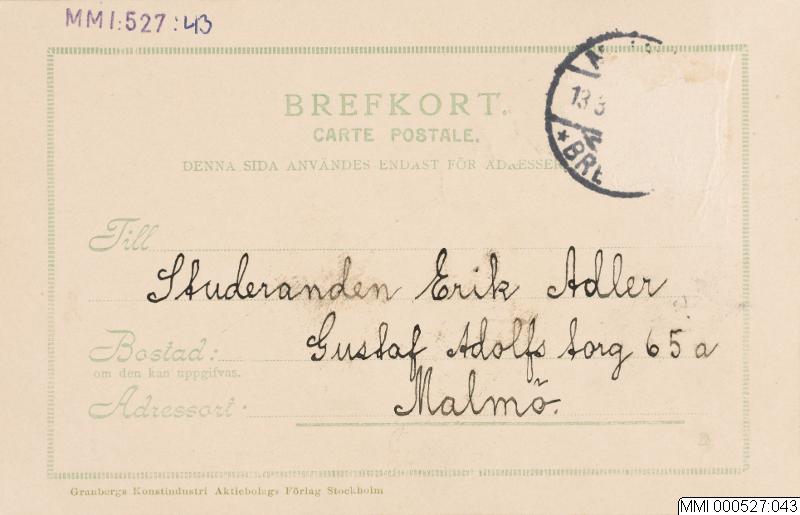 MMI:527:43
BREFKORT.
CARTE POSTALE.
DENNA SIDA ANVÄNDES ENDAST FÖR ADRESSEN.
13
BRE
Till
Studeranden Erik Adler
Bostad:
Gustaf Adolfs torg 65 a
om den kan uppgifvas.
Adressort:
Malmö.
Granbergs Konstindustri Aktiebolags Förlag Stockholm
MMI 000527:043